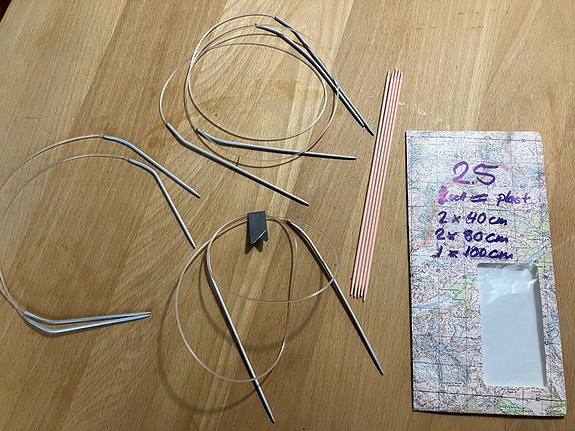 2.5
1 set = plast
2 x 40 cm
2 x 80 cm
1 x 100 cm